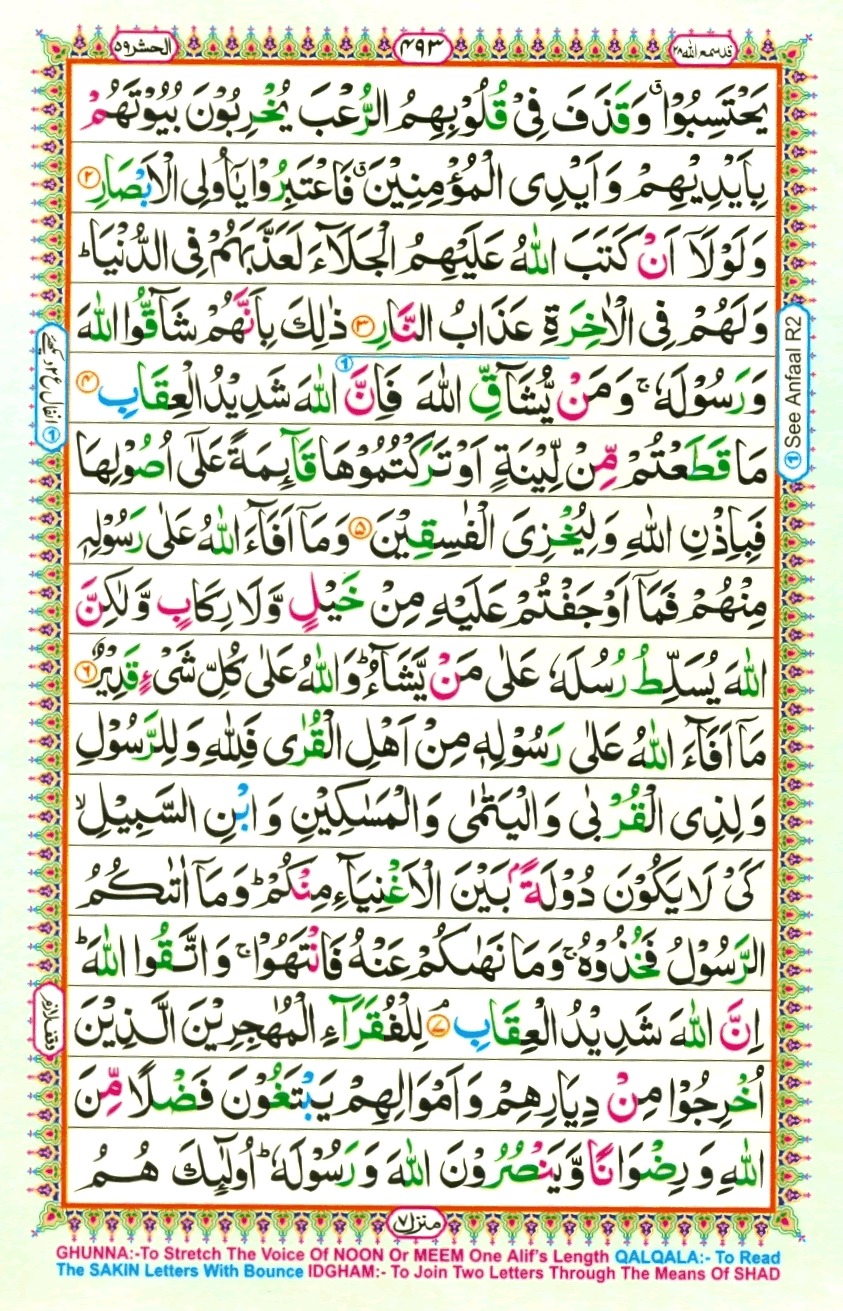 قد سمع الله ۲۸
۴۹۳
الحشر ۵۹
يَحْتَسِبُوْا ۗ وَقَذَفَ فِىْ قُلُوْبِهِمُ الرُّعْبَ يُخْرِبُوْنَ بُيُوْتَهُمْ
بِاَيْدِيْهِمْ وَاَيْدِى الْمُؤْمِنِيْنَ ۗ فَاعْتَبِرُوْا يٰۤاُولِى الْاَبْصَارِ ۝۲
وَلَوْلَاۤ اَنْ كَتَبَ اللّٰهُ عَلَيْهِمُ الْجَلَاۤءَ لَعَذَّبَهُمْ فِى الدُّنْيَا ؕ
وَلَهُمْ فِى الْاٰخِرَةِ عَذَابُ النَّارِ ۝۳ ذٰلِكَ بِاَنَّهُمْ شَآقُّوا اللّٰهَ
وَرَسُوْلَهٗ ۚ وَمَنْ يُّشَآقِّ اللّٰهَ فَاِنَّ اللّٰهَ شَدِيْدُ الْعِقَابِ ۝۴
مَا قَطَعْتُمْ مِّنْ لِّيْنَةٍ اَوْ تَرَكْتُمُوْهَا قَآئِمَةً عَلٰۤى اُصُوْلِهَا
فَبِاِذْنِ اللّٰهِ وَلِيُخْزِىَ الْفٰسِقِيْنَ ۝۵ وَمَاۤ اَفَآءَ اللّٰهُ عَلٰى رَسُوْلِهٖ
مِنْهُمْ فَمَاۤ اَوْجَفْتُمْ عَلَيْهِ مِنْ خَيْلٍ وَّلَا رِكَابٍ وَّلٰكِنَّ
اللّٰهَ يُسَلِّطُ رُسُلَهٗ عَلٰى مَنْ يَّشَآءُ ؕ وَاللّٰهُ عَلٰى كُلِّ شَىْءٍ قَدِيْرٌ ۝۶
مَاۤ اَفَآءَ اللّٰهُ عَلٰى رَسُوْلِهٖ مِنْ اَهْلِ الْقُرٰى فَلِلّٰهِ وَلِلرَّسُوْلِ
وَلِذِى الْقُرْبٰى وَالْيَتٰمٰى وَالْمَسٰكِيْنِ وَابْنِ السَّبِيْلِ ۙ
كَىْ لَا يَكُوْنَ دُوْلَةًۢ بَيْنَ الْاَغْنِيَآءِ مِنْكُمْ ؕ وَمَاۤ اٰتٰىكُمُ
الرَّسُوْلُ فَخُذُوْهُ ۚ وَمَا نَهٰىكُمْ عَنْهُ فَانْتَهُوْا ۚ وَاتَّقُوا اللّٰهَ ؕ
اِنَّ اللّٰهَ شَدِيْدُ الْعِقَابِ ۝۷ لِلْفُقَرَآءِ الْمُهٰجِرِيْنَ الَّذِيْنَ
اُخْرِجُوْا مِنْ دِيَارِهِمْ وَاَمْوَالِهِمْ يَبْتَغُوْنَ فَضْلًا مِّنَ
اللّٰهِ وَرِضْوَانًا وَّيَنْصُرُوْنَ اللّٰهَ وَرَسُوْلَهٗ ؕ اُولٰٓئِكَ هُمُ
① See Anfaal R2
① انفال ع۲ دیکھئے
وقف لازم
منزل ۷
GHUNNA:-To Stretch The Voice Of NOON Or MEEM One Alif's Length QALQALA:- To Read
The SAKIN Letters With Bounce IDGHAM:- To Join Two Letters Through The Means Of SHAD